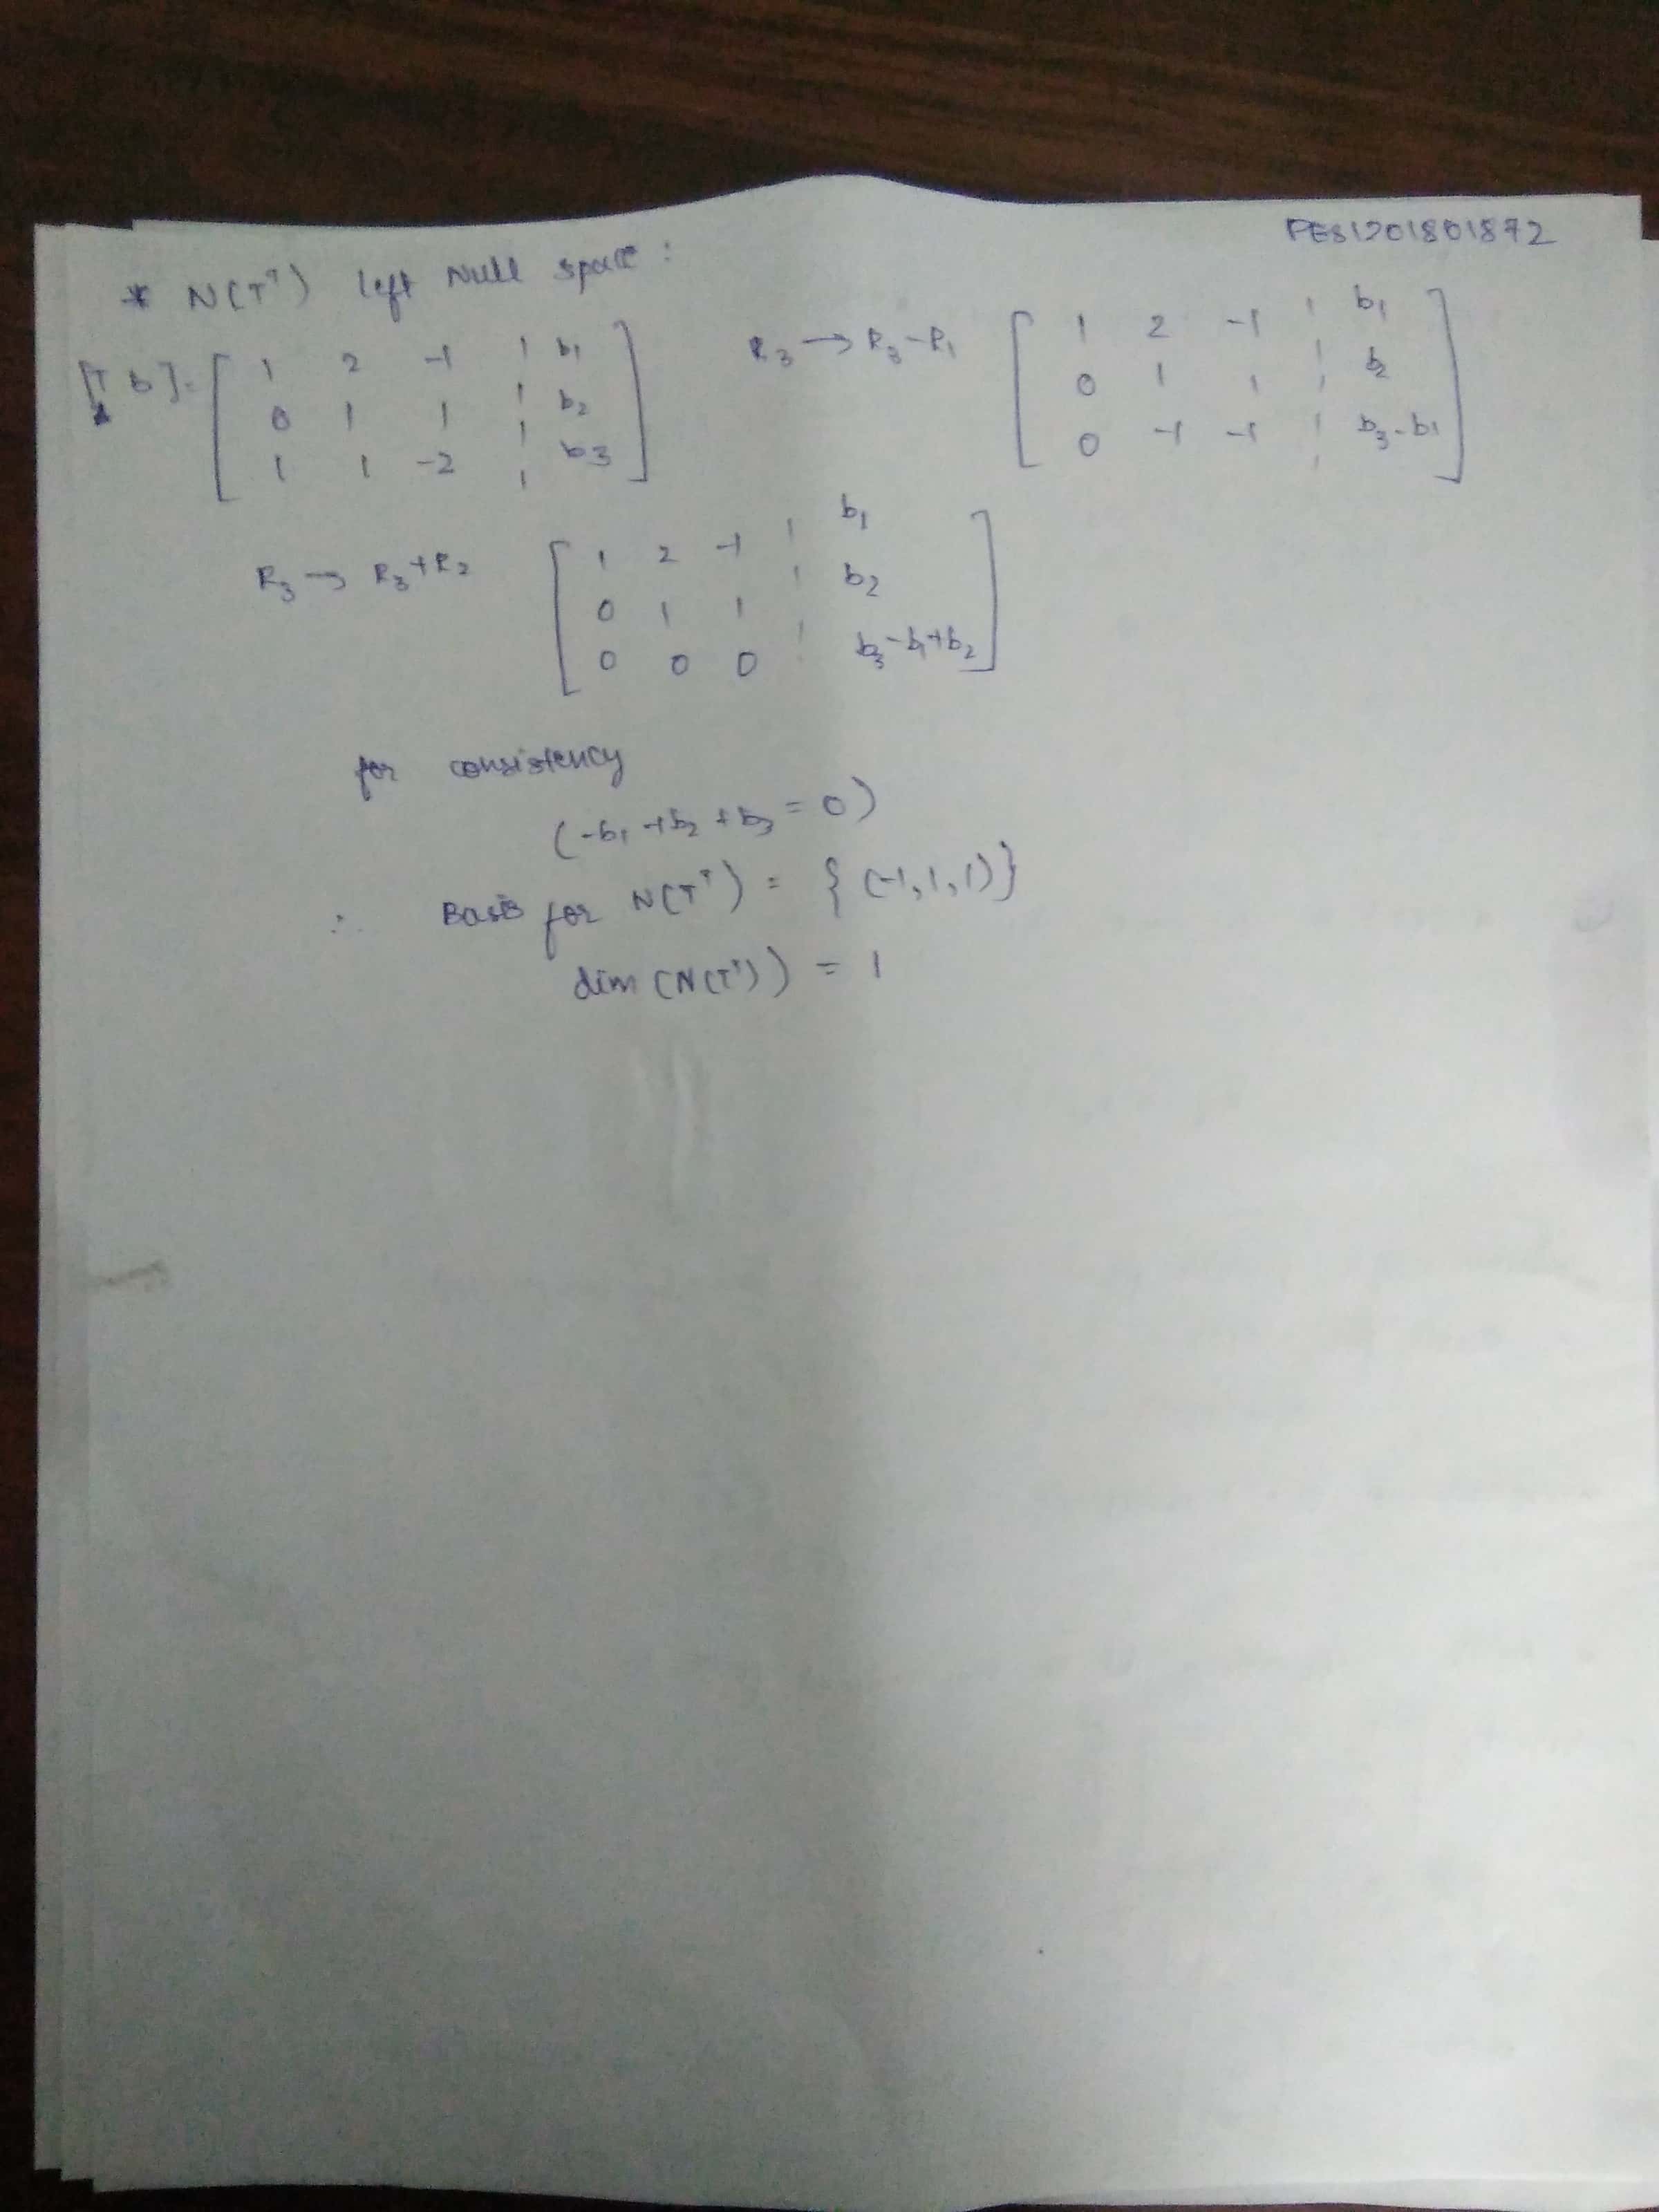 PES1201801872
* N(Tᵀ) left Null space :
[T b] = [ 1 2 -1 ¦ b₁ R₃ → R₃-R₁ [ 1 2 -1 ¦ b₁
0 1 1 ¦ b₂ 0 1 1 ¦ b₂
1 1 -2 ¦ b₃ ] 0 -1 -1 ¦ b₃-b₁ ]
R₃ → R₃+R₂ [ 1 2 -1 ¦ b₁
0 1 1 ¦ b₂
0 0 0 ¦ b₃-b₁+b₂ ]
for consistency
(-b₁+b₂+b₃ = 0)
∴ Basis for N(Tᵀ) = {(-1,1,1)}
dim (N(Tᵀ)) = 1